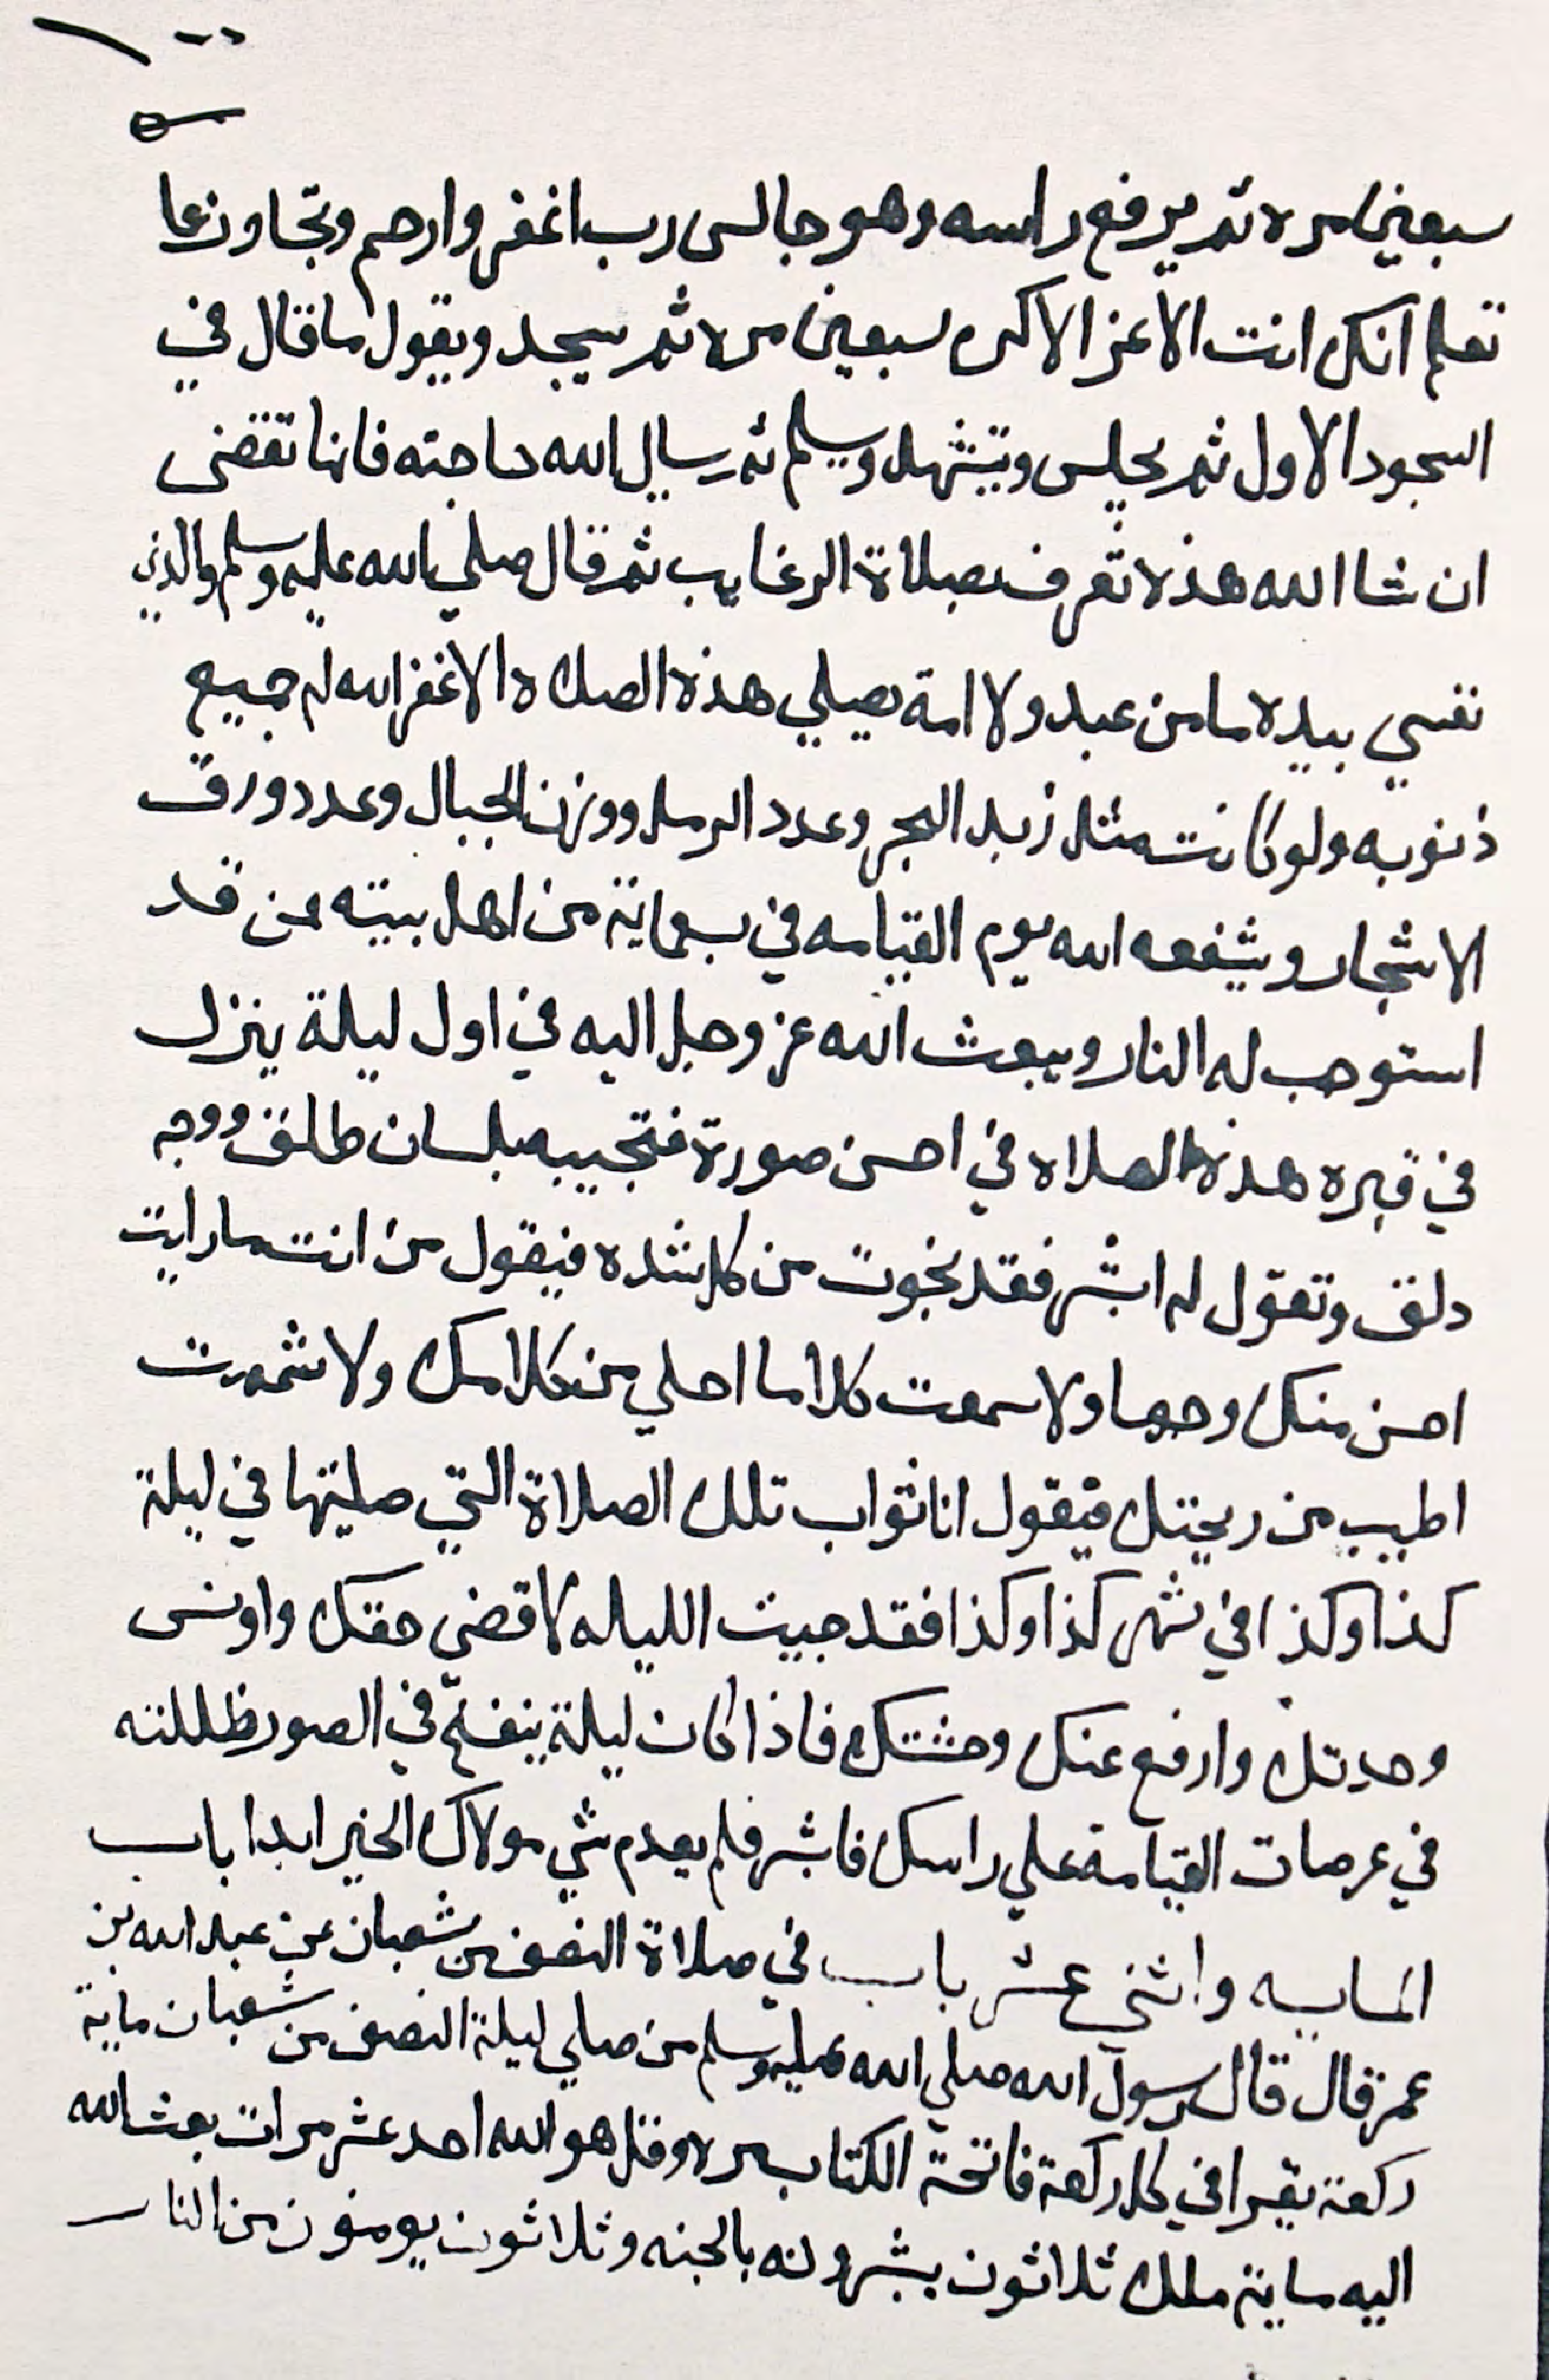 سبعين مره ثم يرفع راسه وهو جالس رب اغفر وارحم وتجاوز عما
تعلم انك انت الاعز الاكرم سبعين مره ثم يسجد ويقول ما قال في
السجود الاول ثم يجلس ويتشهد ويسلم ثم يسال الله حاجته فانها تقضى
ان شا الله هذه تعرف بصلاة الرغايب ثم قال صلي الله عليه وسلم والذي
نفسي بيده ما من عبد ولا امة يصيلي هذه الصلاه الا غفر الله له جميع
ذنوبه ولو كانت مثل زبد البحر وعدد الرمل ووزن الجبال وعدد ورق
الاشجار ويشفعه الله يوم القيامه في سبعماية من اهل بيته ممن قد
استوجب له النار ويبعث الله عز وجل اليه في اول ليلة ينزل
في قبره هذه الصلاه في احسن صورة فتجيبه بلسان طلق ووجه
دلق وتقول له ابشر فقد نجوت من كل شده فيقول من انت ما رايت
احسن منك وجها ولا سمعت كلاما احلي من كلامك ولا شممت
اطيب من ريحتك فيقول انا ثواب تلك الصلاة التي صليتها في ليلة
كذا وكذا في شهر كذا وكذا فقد جيت الليله لاقضي حقك واونس
وحدتك وارفع عنك وحشتك فاذا كان ليلة ينفخ في الصور ظللته
في عرصات القيامة علي راسك فابشر فلم يعدم شي مولاك الخير ابدا باب
المايه واثني عشر باب في صلاة النصف من شعبان عن عبد الله بن
عمر قال قال رسول الله صلي الله عليه وسلم من صلي ليلة النصف من شعبان ماية
ركعة يقرا في كل ركعة فاتحة الكتاب مره وقل هو الله احد عشر مرات بعث الله
اليه ماية ملك ثلاثون يبشرونه بالجنه وثلاثون يومنون من النار